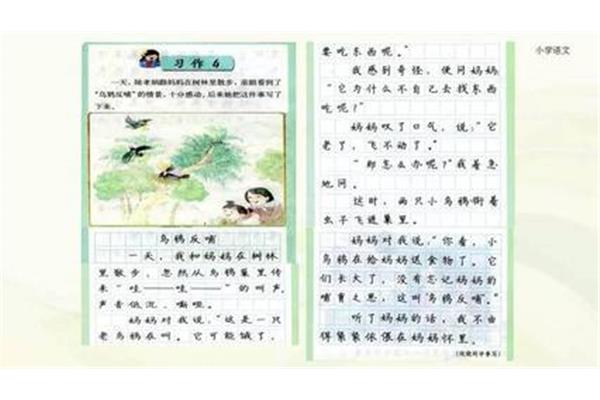 习作4
一天，陆老师跟妈妈在树林里散步，亲眼看到了
“乌鸦反哺”的情景，十分感动，后来她把这件事写了
下来。
乌鸦反哺
一天，我和妈妈在树林
里散步，忽然从乌鸦巢里传
来“哇——哇——”的叫声，
声音低沉、嘶哑。
妈妈对我说，“这是一只
老乌鸦在叫。它可能饿了，
要吃东西呢。”
我感到奇怪，便问妈妈：
“它为什么不自己去找东西
吃呢？”
妈妈叹了口气，说：“它
老了，飞不动了。”
“那怎么办呢？”我着急
地问。
这时，两只小乌鸦衔着
虫子飞进巢里。
妈妈对我说，“你看，小
乌鸦在给妈妈送食物了，它
们长大了，没有忘记妈妈的
哺育之恩，这叫‘乌鸦反哺’。”
听了妈妈的话，我不由
得紧紧依偎在妈妈怀里。
小学语文